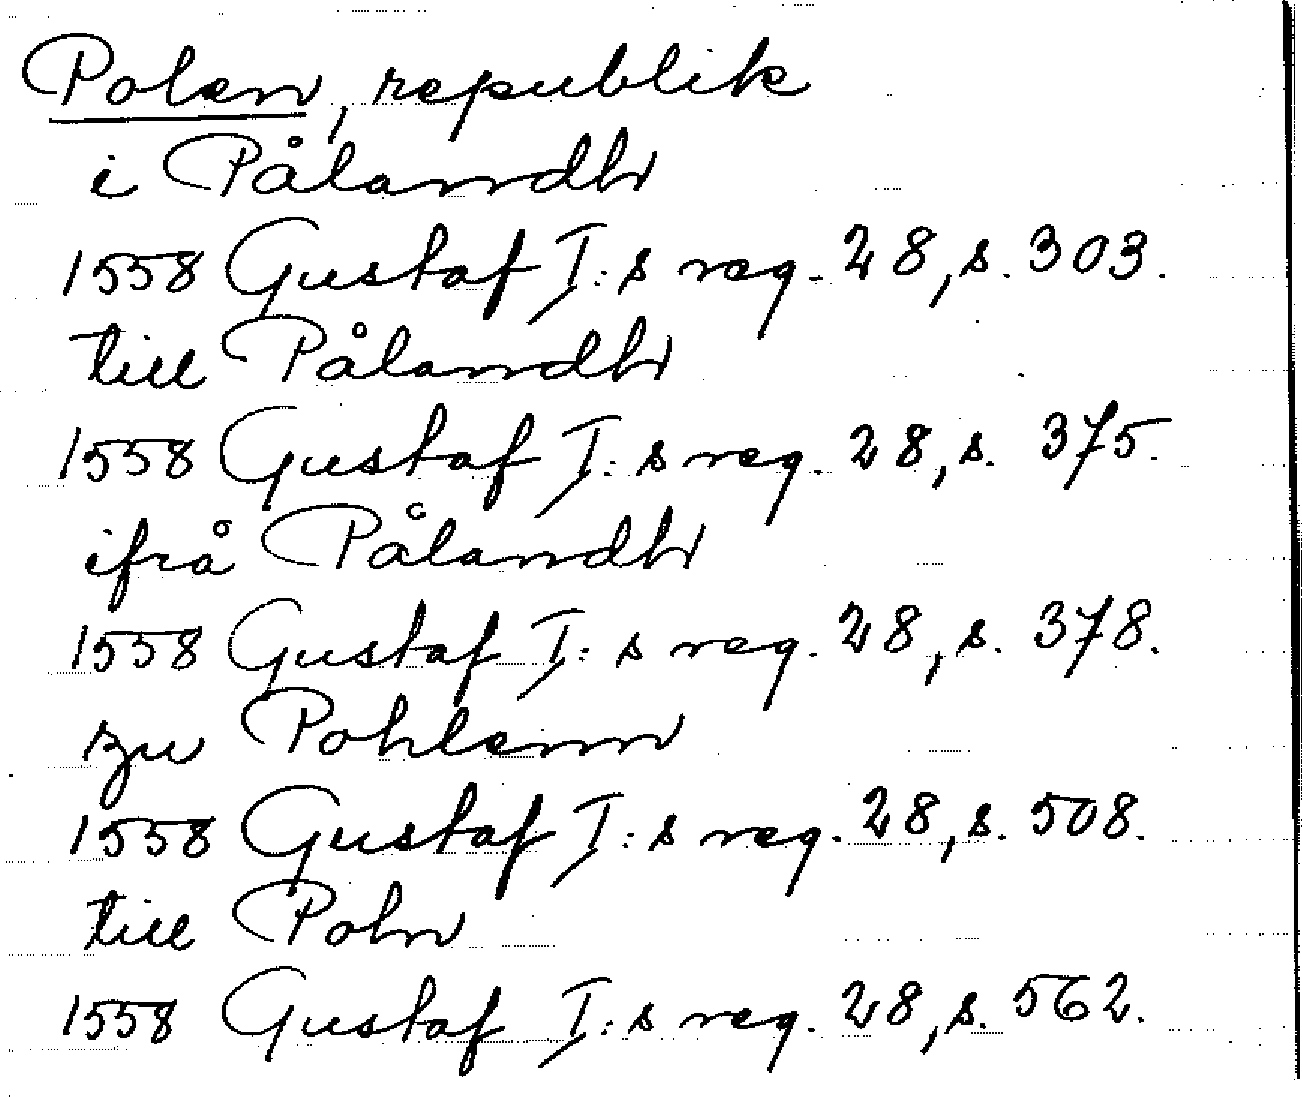 Polen, republik
i Pålandh
1558 Gustaf I:s reg. 28, s. 303.
till Pålandh
1558 Gustaf I:s reg. 28, s. 375.
ifrå Pålandh
1558 Gustaf I:s reg. 28, s. 378.
zu Pohlenn
1558 Gustaf I:s reg. 28, s. 508.
till Poln
1558 Gustaf I:s reg. 28, s. 562.